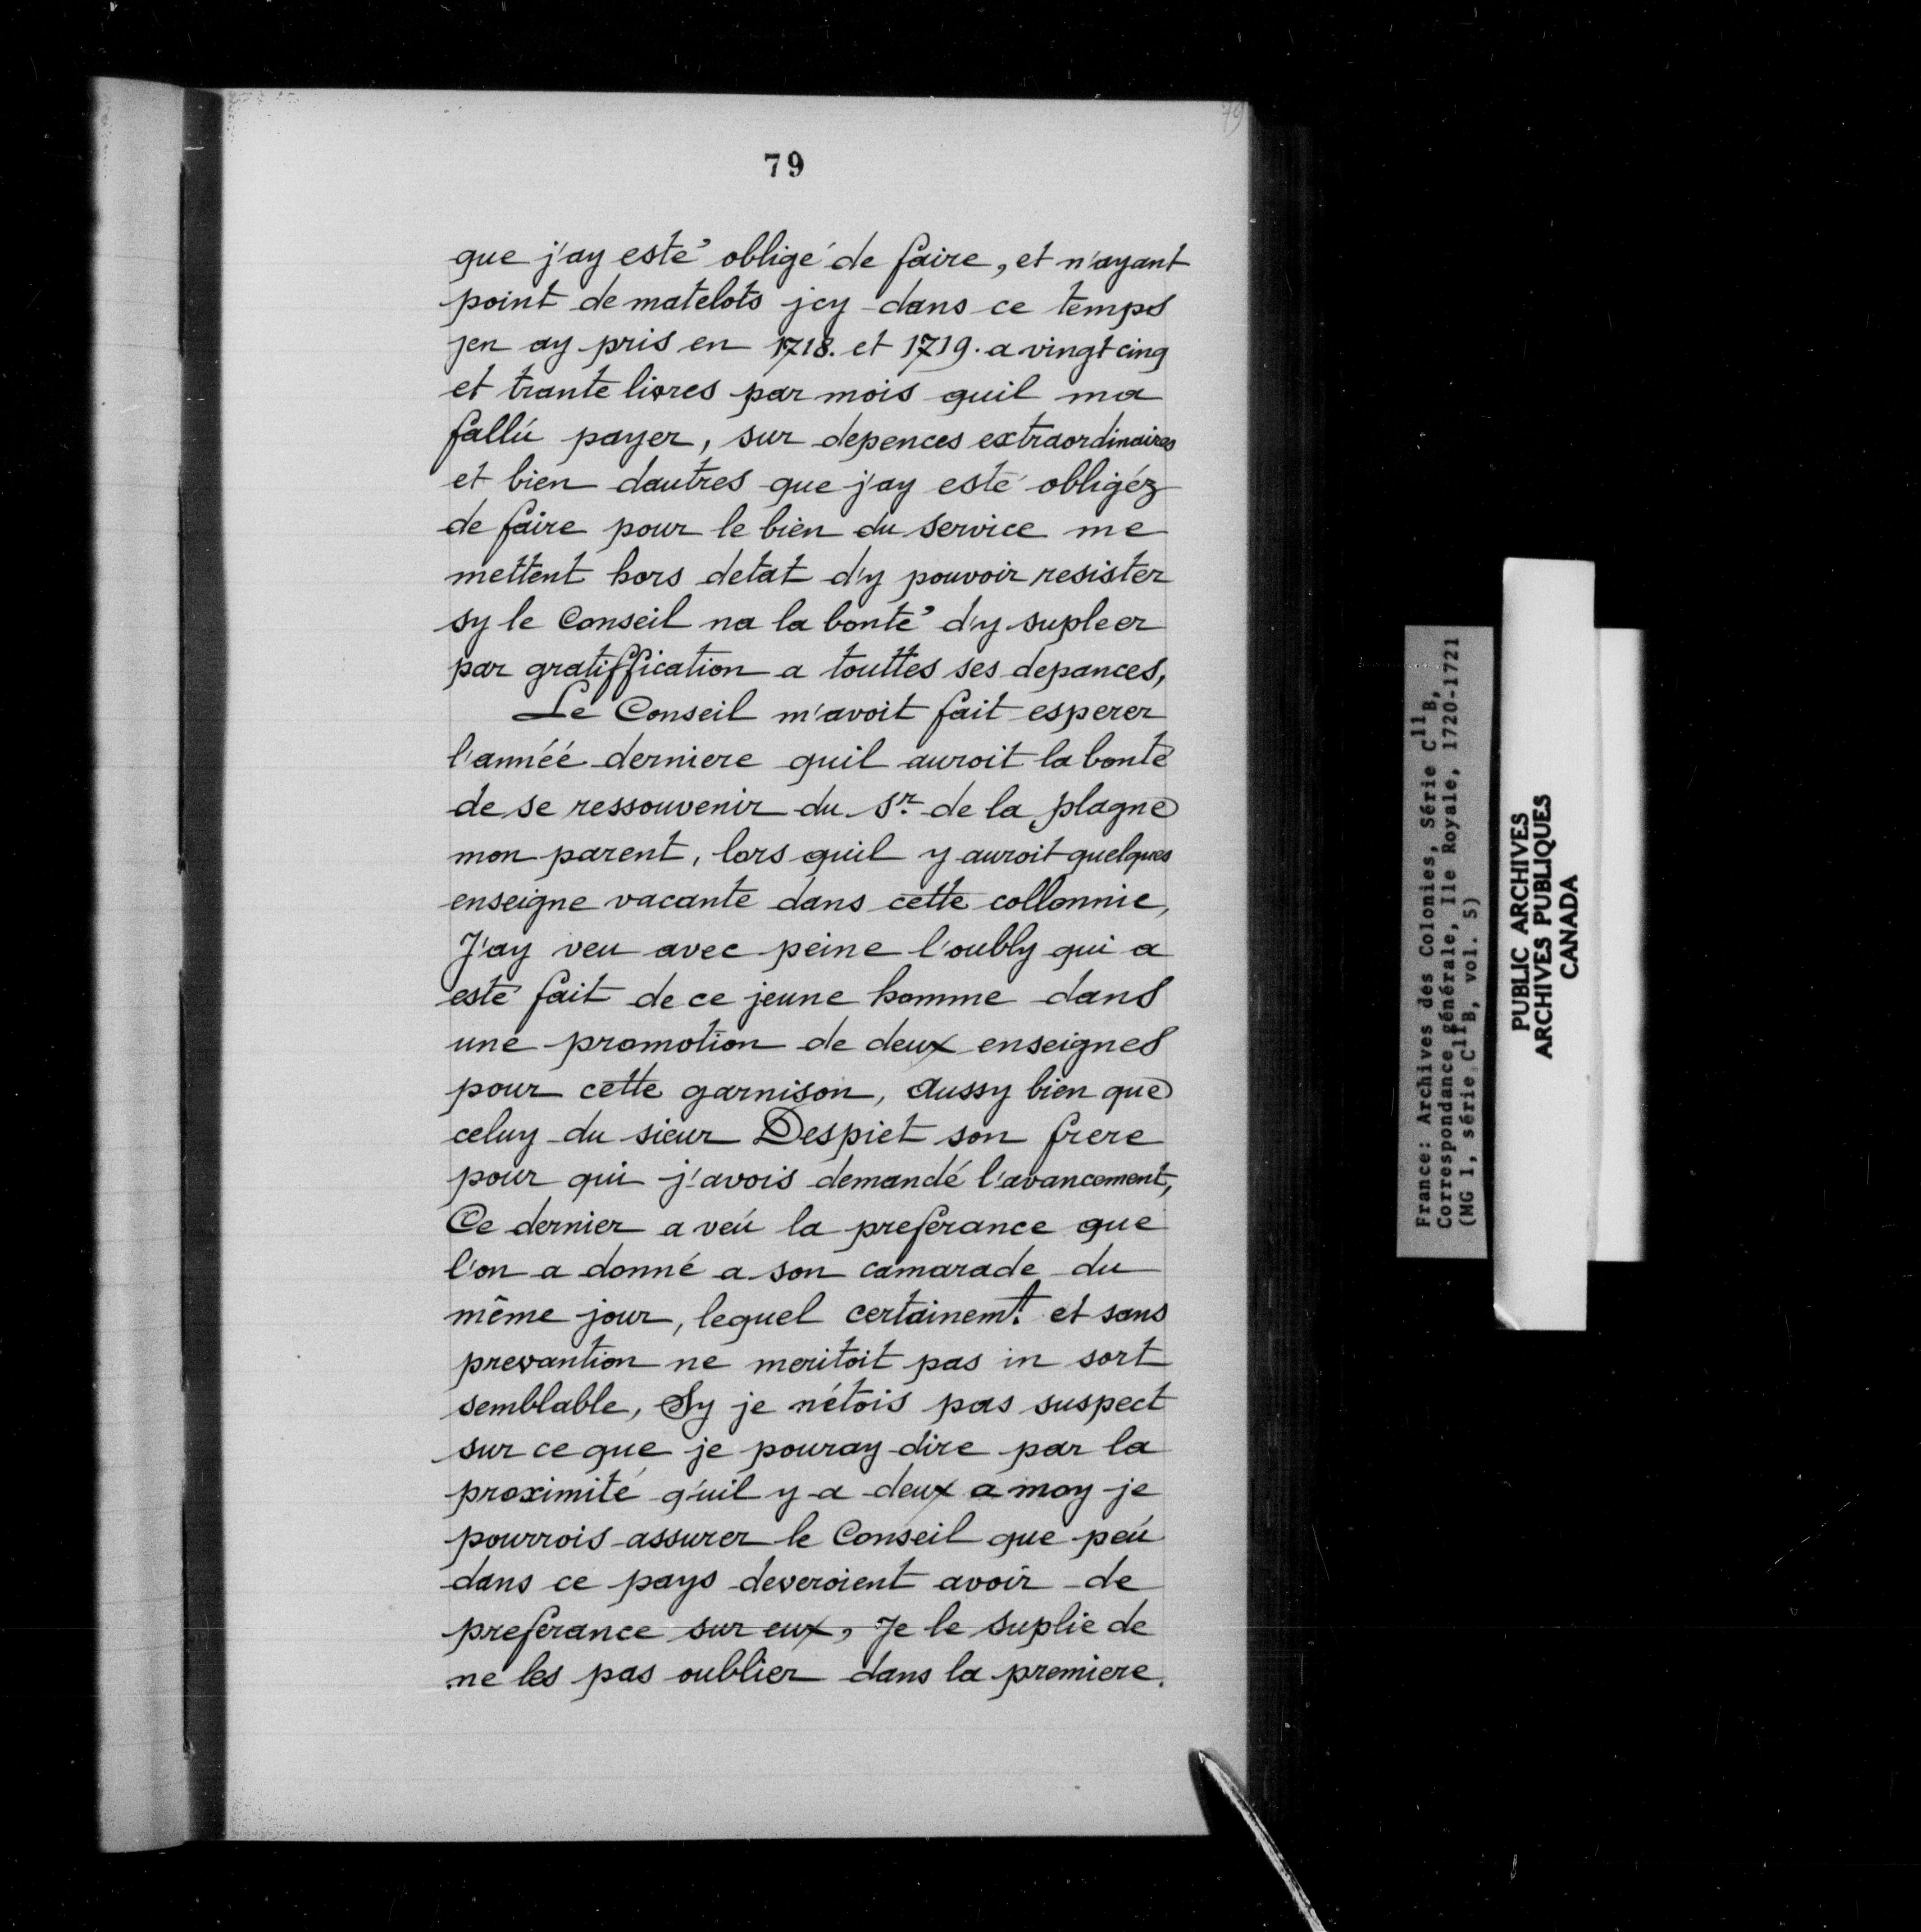 79
79
que j'ay esté obligé de faire, et n'ayant
point de matelots jcy dans ce temps
jen ay pris en 1718. et 1719. a vingt cinq
et trante livres par mois quil ma
fallú payer, sur depences extraordinaires
et bien dautres que j'ay esté obligéz
de faire pour le bien du service me
mettent hors detat d'y pouvoir resister
sy le Conseil na la bonté d'y supleer
par gratiffication a touttes ses depances,
Le Conseil m'avoit fait esperer
l'annéé derniere quil auroit la bonté
de se ressouvenir du Sr. de la plagne
mon parent, lors quil y auroit quelques
enseigne vacante dans cette collonnie,
J'ay veu avec peine l'oubly qui a
esté fait de ce jeune homme dans
une promotion de deux enseignes
pour cette garnison, Aussy bien que
celuy du sieur Despiet son frere
pour qui j'avois demandé l'avancement,
Ce dernier a veú la preferance que
l'on a donné a son camarade du
même jour, lequel certainemt. et sans
prevantion ne meritoit pas in sort
semblable, Sy je n'étois pas suspect
sur ce que je pouray dire par la
proximité q'uil y a deux a moy je
pourrois assurer le Conseil que peú
dans ce pays deveroient avoir de
preferance sur eux, Je le suplie de
ne les pas oublier dans la premiere.
France: Archives des Colonies, Série C11B,
Correspondance générale, Ile Royale, 1720-1721
(MG 1, série C11B, vol. 5)
PUBLIC ARCHIVES
ARCHIVES PUBLIQUES
CANADA